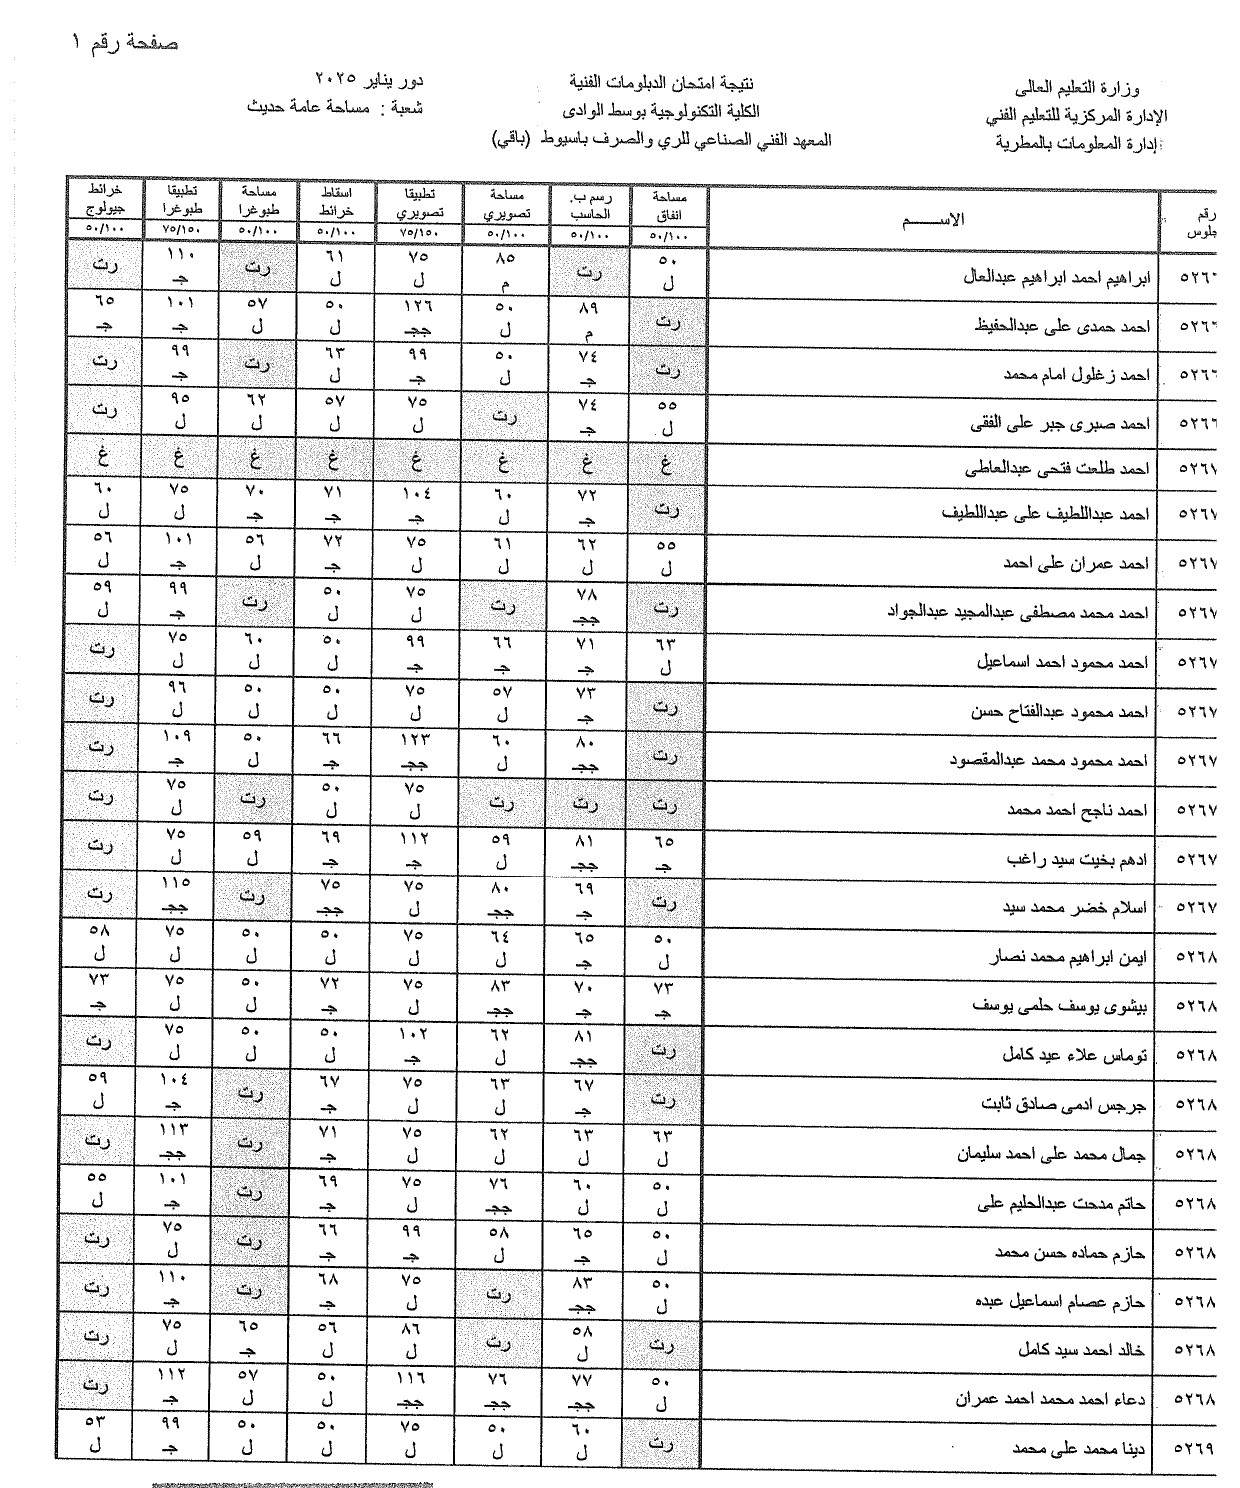 صفحة رقم ١
وزارة التعليم العالى
نتيجة امتحان الدبلومات الفنية
دور يناير ٢٠٢٥
الإدارة المركزية للتعليم الفني
الكلية التكنولوجية بوسط الوادى
شعبة : مساحة عامة حديث
إدارة المعلومات بالمطرية
المعهد الفني الصناعي للري والصرف باسيوط (باقي)
رقم جلوس الاســـــم مساحة انفاق رسم ب. الحاسب مساحة تصويري تطبيقا تصويري اسقاط خرائط مساحة طبوغرا تطبيقا طبوغرا خرائط جيولوج
٥٠/١٠٠ ٥٠/١٠٠ ٥٠/١٠٠ ٧٥/١٥٠ ٥٠/١٠٠ ٥٠/١٠٠ ٧٥/١٥٠ ٥٠/١٠٠
٥٢٦ ابراهيم احمد ابراهيم عبدالعال ٥٠ ل رت ٨٥ م ٧٥ ل ٦١ ل رت ١١٠ جـ رت
٥٢٦ احمد حمدى على عبدالحفيظ رت ٨٩ م ٥٠ ل ١٢٦ ججـ ٥٠ ل ٥٧ ل ١٠١ جـ ٦٥ جـ
٥٢٦ احمد زغلول امام محمد رت ٧٤ جـ ٥٠ ل ٩٩ جـ ٦٣ ل رت ٩٩ جـ رت
٥٢٦ احمد صبرى جبر على الفقى ٥٥ ل ٧٤ جـ رت ٧٥ ل ٥٧ ل ٦٢ ل ٩٥ ل رت
٥٢٦ احمد طلعت فتحى عبدالعاطى غ غ غ غ غ غ غ غ
٥٢٦٧ احمد عبداللطيف على عبداللطيف رت ٧٢ جـ ٦٠ ل ١٠٤ جـ ٧١ جـ ٧٠ جـ ٧٥ ل ٦٠ ل
٥٢٦٧ احمد عمران على احمد ٥٥ ل ٦٢ ل ٦١ ل ٧٥ ل ٧٢ جـ ٥٦ ل ١٠١ جـ ٥٦ ل
٥٢٦٧ احمد محمد مصطفى عبدالمجيد عبدالجواد رت ٧٨ ججـ رت ٧٥ ل ٥٠ ل رت ٩٩ جـ ٥٩ ل
٥٢٦٧ احمد محمود احمد اسماعيل ٦٣ ل ٧١ جـ ٦٦ جـ ٩٩ جـ ٥٠ ل ٦٠ ل ٧٥ ل رت
٥٢٦٧ احمد محمود عبدالفتاح حسن رت ٧٣ جـ ٥٧ ل ٧٥ ل ٥٠ ل ٥٠ ل ٩٦ ل رت
٥٢٦٧ احمد محمود محمد عبدالمقصود رت ٨٠ ججـ ٦٠ ل ١٢٣ ججـ ٦٦ جـ ٥٠ ل ١٠٩ جـ رت
٥٢٦٧ احمد ناجح احمد محمد رت رت رت ٧٥ ل ٥٠ ل رت ٧٥ ل رت
٥٢٦٧ ادهم بخيت سيد راغب ٦٥ جـ ٨١ ججـ ٥٩ ل ١١٢ جـ ٦٩ جـ ٥٩ ل ٧٥ ل رت
٥٢٦٧ اسلام خضر محمد سيد رت ٦٩ جـ ٨٠ ججـ ٧٥ ل ٧٥ ججـ رت ١١٥ ججـ رت
٥٢٦٨ ايمن ابراهيم محمد نصار ٥٠ ل ٦٥ جـ ٦٤ ل ٧٥ ل ٥٠ ل ٥٠ ل ٧٥ ل ٥٨ ل
٥٢٦٨ بيشوى يوسف حلمى يوسف ٧٣ جـ ٧٠ جـ ٨٣ ججـ ٧٥ ل ٧٢ جـ ٥٠ ل ٧٥ ل ٧٣ جـ
٥٢٦٨ توماس علاء عيد كامل رت ٨١ ججـ ٦٢ ل ١٠٢ جـ ٥٠ ل ٥٠ ل ٧٥ ل رت
٥٢٦٨ جرجس ادمى صادق ثابت رت ٦٧ جـ ٦٣ ل ٧٥ ل ٦٧ جـ رت ١٠٤ جـ ٥٩ ل
٥٢٦٨ جمال محمد على احمد سليمان ٦٣ ل ٦٣ ل ٦٢ ل ٧٥ ل ٧١ جـ رت ١١٣ ججـ رت
٥٢٦٨ حاتم مدحت عبدالحليم على ٥٠ ل ٦٠ ل ٧٦ ججـ ٧٥ ل ٦٩ جـ رت ١٠١ جـ ٥٥ ل
٥٢٦٨ حازم حماده حسن محمد ٥٠ ل ٦٥ جـ ٥٨ ل ٩٩ جـ ٦٦ جـ رت ٧٥ ل رت
٥٢٦٨ حازم عصام اسماعيل عبده ٥٠ ل ٨٣ ججـ رت ٧٥ ل ٦٨ جـ رت ١١٠ جـ رت
٥٢٦٨ خالد احمد سيد كامل رت ٥٨ ل رت ٨٦ ل ٥٦ ل ٦٥ جـ ٧٥ ل رت
٥٢٦٨ دعاء احمد محمد احمد عمران ٥٠ ل ٧٧ ججـ ٧٦ ججـ ١١٦ ججـ ٥٠ ل ٥٧ ل ١١٢ جـ رت
٥٢٦٩ دينا محمد على محمد رت ٦٠ ل ٥٠ ل ٧٥ ل ٥٠ ل ٥٠ ل ٩٩ جـ ٥٣ ل